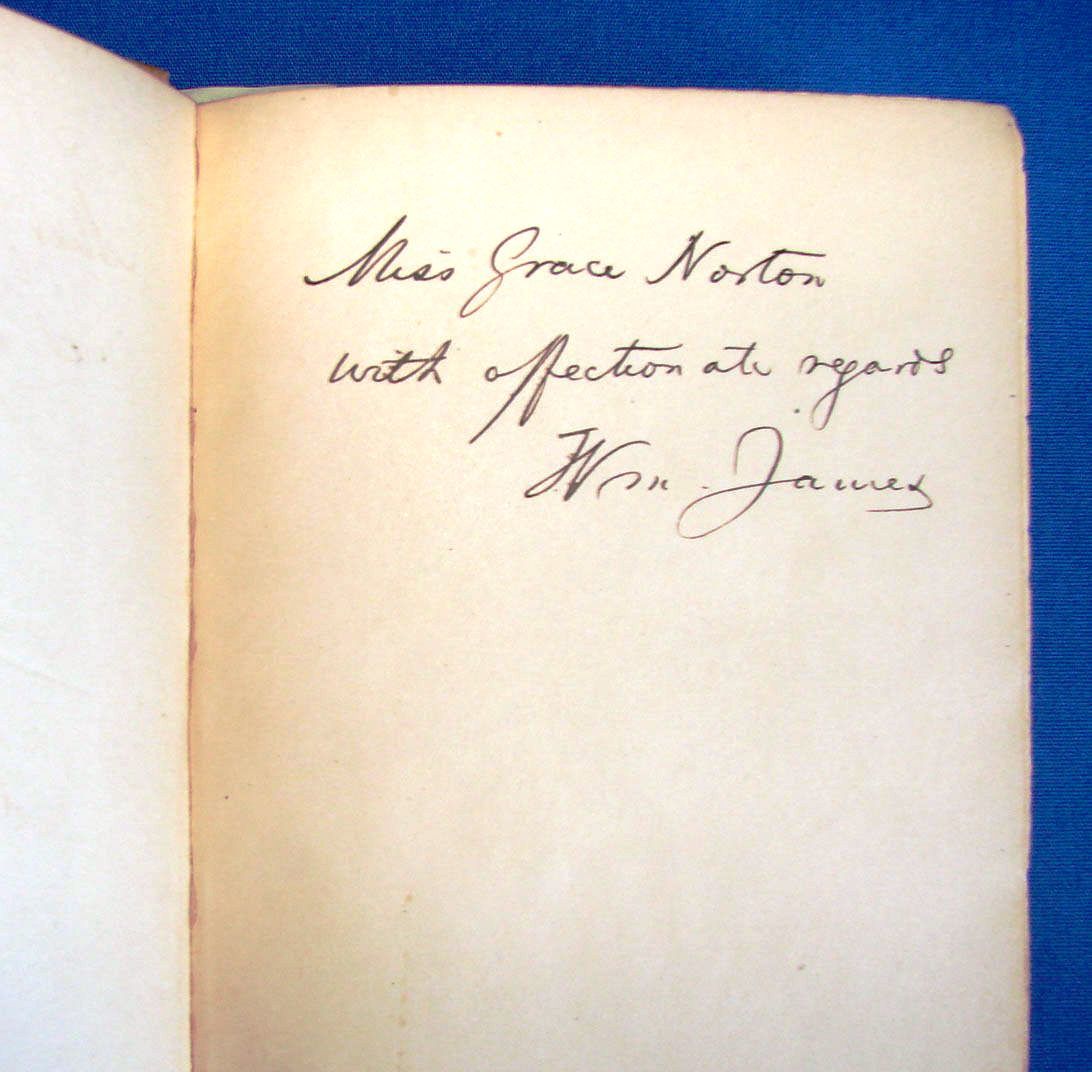 Miss Grace Norton
with affectionate regards
Wm. James